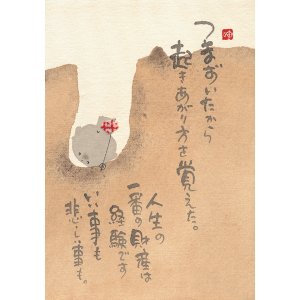 つまずいたから
起きあがり方を覚えた。
人生の
一番の財産は
経験です
いい事も
悲しい事も。
ゆ